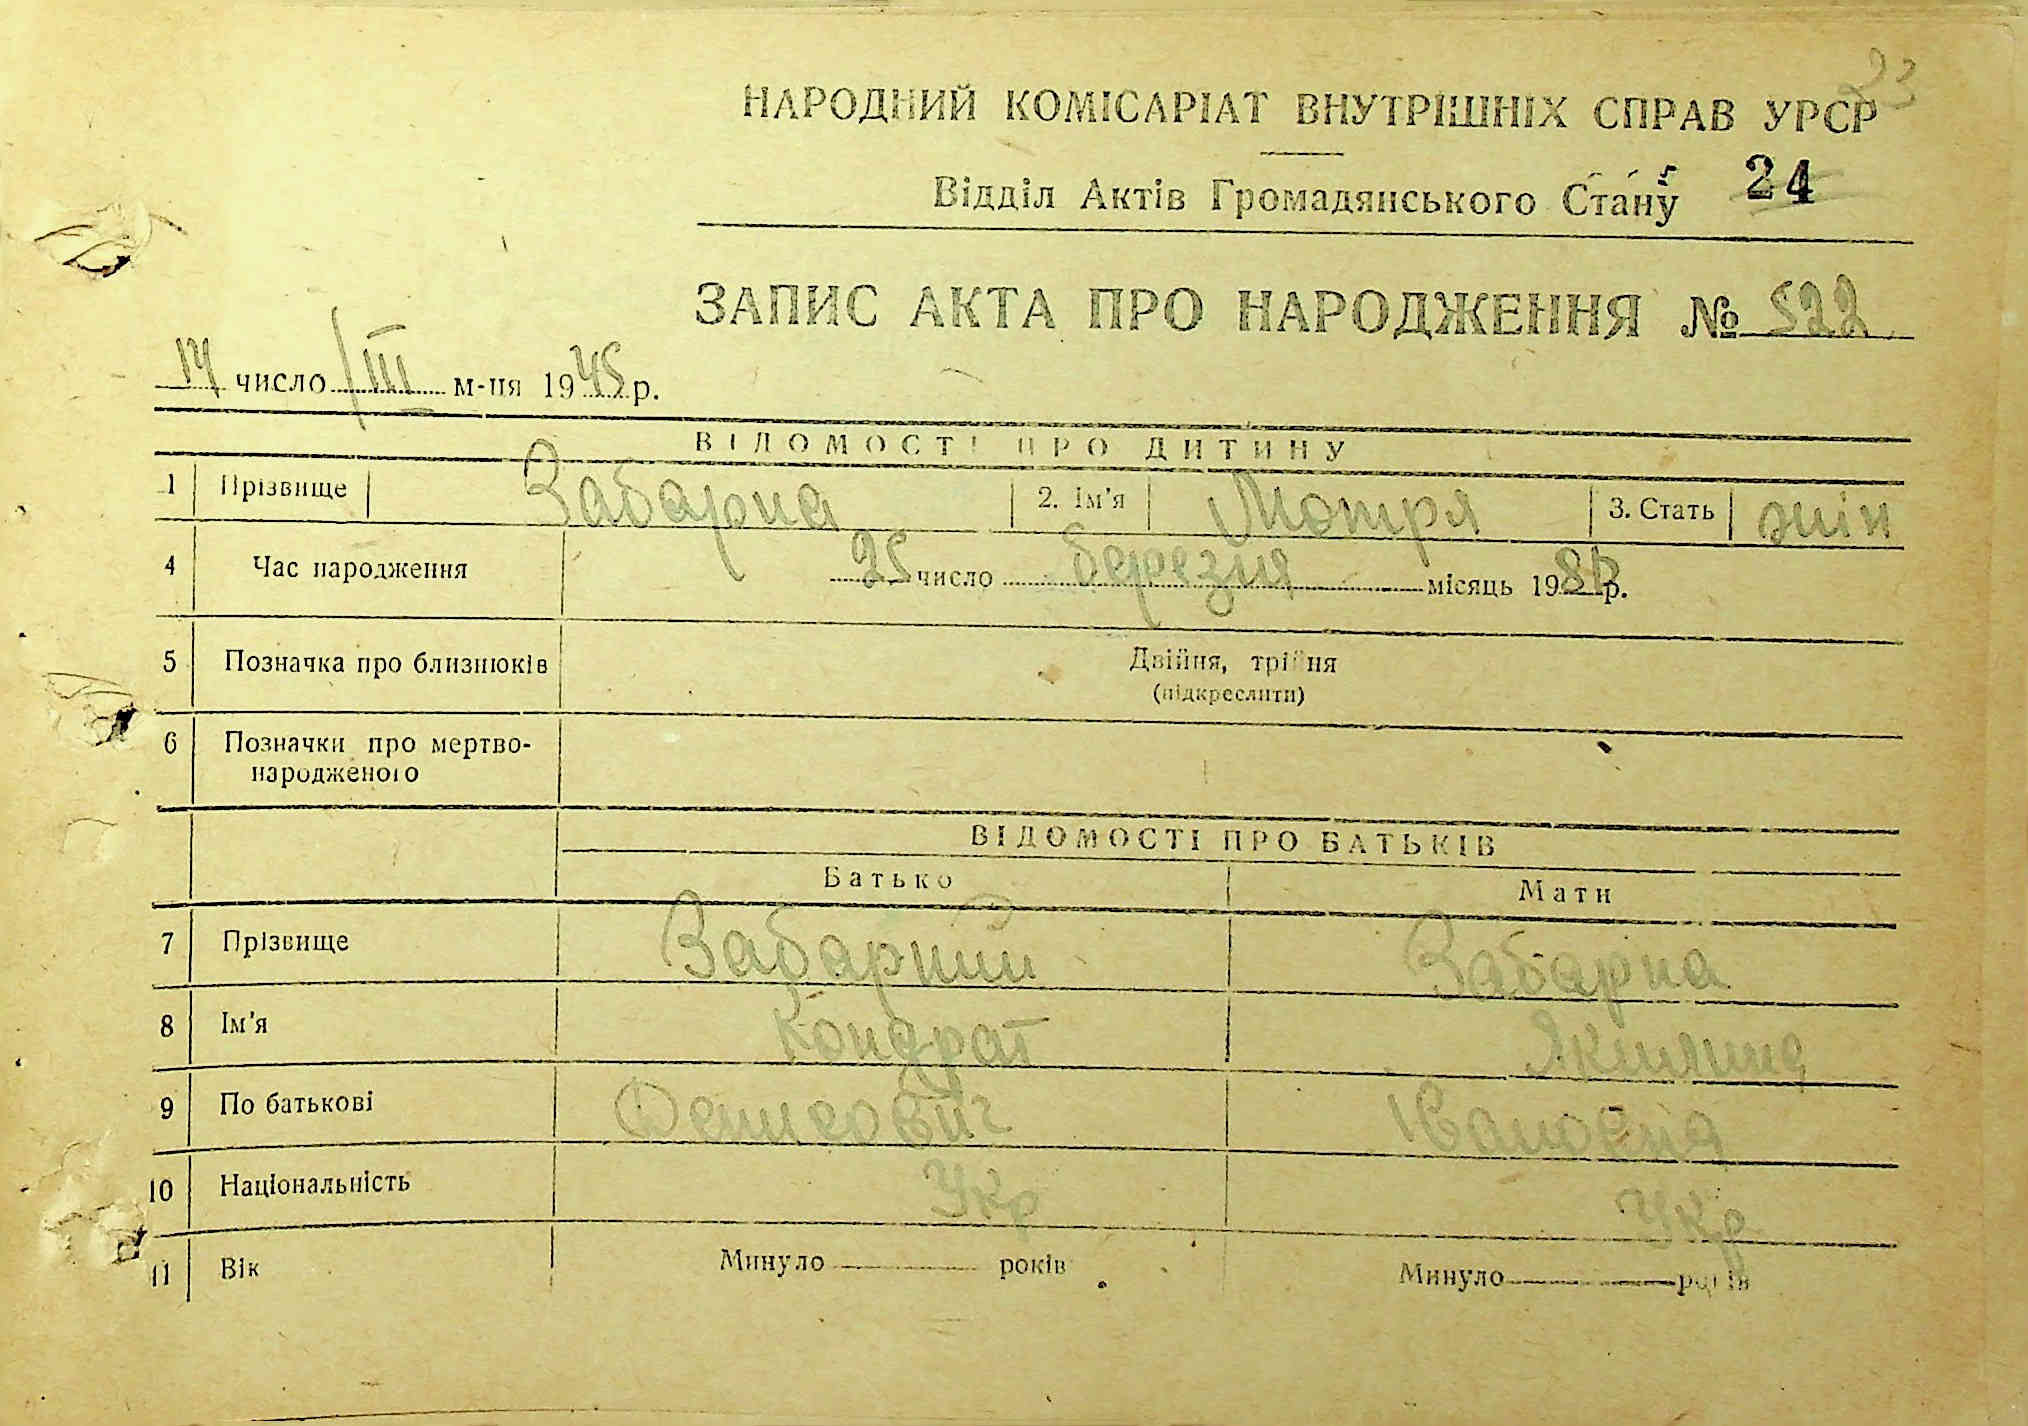 23
НАРОДНИЙ КОМІСАРІАТ ВНУТРІШНІХ СПРАВ УРСР
Відділ Актів Громадянського Стану 24
ЗАПИС АКТА ПРО НАРОДЖЕННЯ № 522
14 число III м-ця 1945 р.
ВІДОМОСТІ ПРО ДИТИНУ
1 Прізвище Забарна 2. Ім'я Мотря 3. Стать жін
4 Час народження 25 число березня місяць 19 р.
5 Позначка про близнюків Двійня, трійня
(підкреслити)
6 Позначки про мертво-
народженого
ВІДОМОСТІ ПРО БАТЬКІВ
Батько Мати
7 Прізвище Забарний Забарна
8 Ім'я Кондрат Якилина
9 По батькові Денисович Івановна
10 Національність Укр Укр
11 Вік Минуло років Минуло років